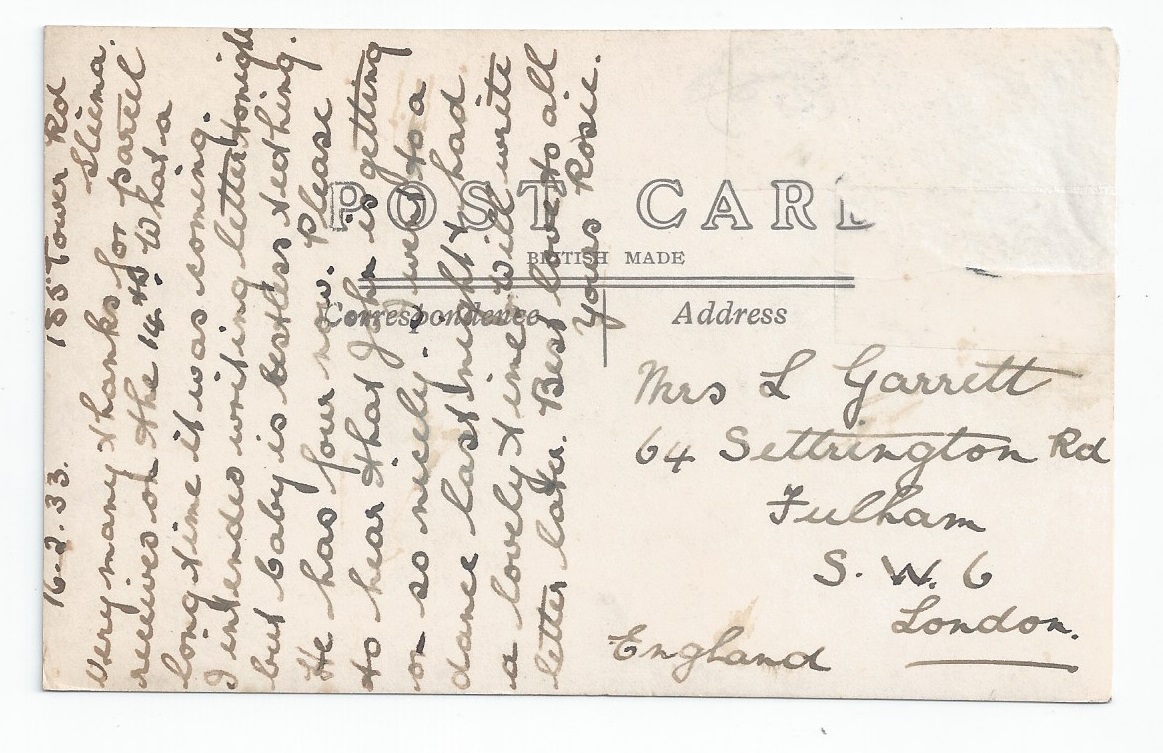 16-2.33. 155 Tower Rd
Sliema.
Very many thanks for parcel
receives on the 14th. What a
long time it was coming.
I intended writing letter tonight
but baby is restless tedthing.
He has four now. Please
to hear that John is getting
on so nicely. I went to a
dance last night & had
a lovely time. Will write
letter later. Best love to all
Yours Rosie.
POST CARD
BRITISH MADE
Correspondence
Address
Mrs L Garrett
64 Settrington Rd
Fulham
S. W. 6
London.
England